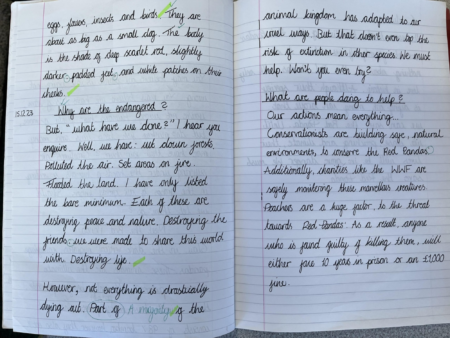 eggs, flowers, insects and birds. They are
about as big as a small dog. The body
is the shade of deep scarlet red, slightly
darker, padded feet, and white patches on their
cheeks.
15.12.23 Why are the endangered?
But, "what have we done?" I hear you
enquire. Well, we have: cut down forests.
Polluted the air. Set areas on fire.
Flooded the land. I have only listed
the bare minimum. Each of these are
destroying peace and nature. Destroying the
friends: we were made to share this world
with. Destroying life.
However, not everything is drastically
dying out. Part of A majority of the
animal kingdom has adapted to our
cruel ways. But that doesn't even top the
risk of extinction in other species. We must
help. Won't you even try?
What are people doing to help?
Our actions mean everything...
Conservationists are building safe, natural
environments, to conserve the Red Pandas.
Additionally, charities like the WWF are
safely monitoring these marvellous creatures.
Poachers are a huge factor, to the threat
towards Red-Pandas. As a result, anyone
who is found guilty of killing them, will
either face 10 years in prison or an £1,000
fine.